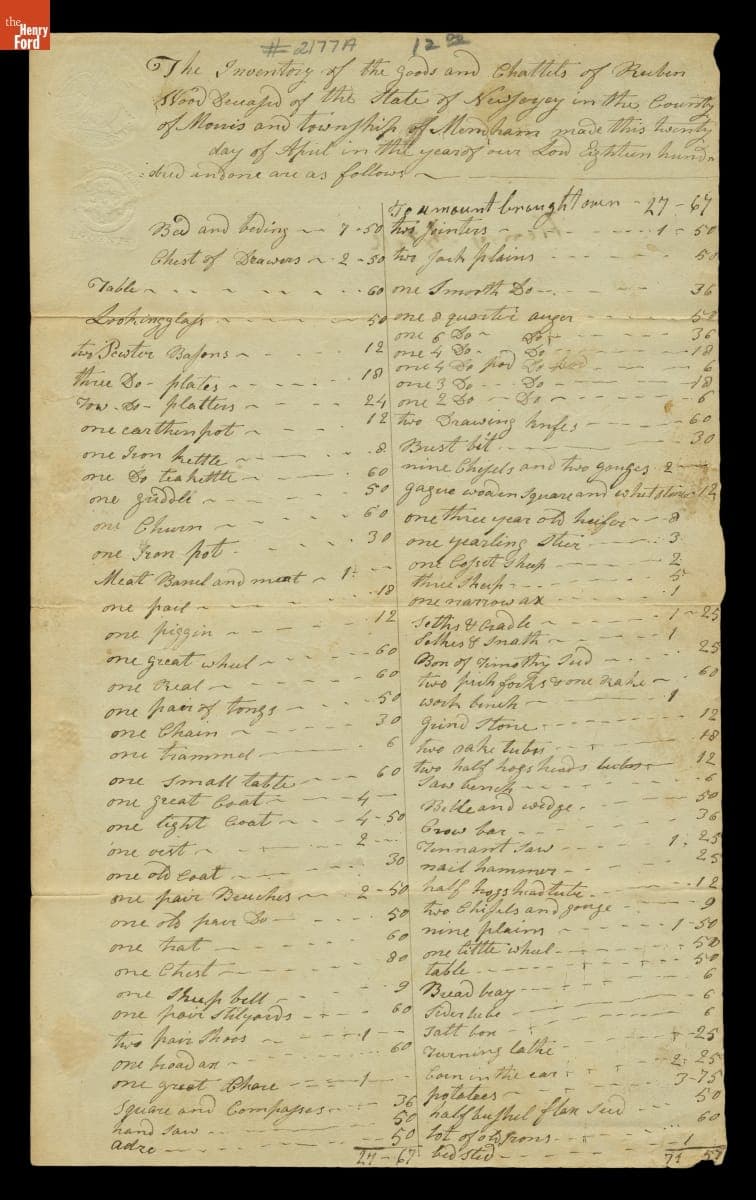 the
Henry
Ford
#2177A 12 00
The Inventory of the goods and Chattels of Reubin
Wood Deceased of the State of New Jersey in the County
of Morris and township of Mernham made this twenty
day of April in the year of our Lord Eighteen hund-
:dred and one are as follows
Bed and beding 7-50
Chest of Drawers 2-50
Table 60
Lookingglass 50
two Pewter Basons 12
three Do- plates 18
Tow-Do- platters 24
one earthen pot 12
one Iron kettle 8
one Do teakettle 60
one griddle 50
one Churn 60
one Iron pot 30
Meat Barrel and meat 1
one pail 18
one piggin 12
one great wheel 60
one Real 60
one pair of tongs 50
one Chain 30
one trammel 6
one small table 60
one great Coat 4
one light Coat 4-50
one vest 2
one old Coat 30
one pair Breeches 2-50
one old pair Do 50
one hat 60
one Chest 80
one Sheep bell 9
one pair Stilyards 60
two pair Shoos 1
one broad ax 60
one great Chare 1
Square and Compasses 36
hand saw 50
adze 50
27-67
To amount brought over 27-67
two Jointers 1-50
two Jack plains 50
one Smooth Do 36
one 8 quarter auger 50
one 6 Do Do 36
one 4 Do Do 18
one 4 Do pod Do 6
one 3 Do Do 18
one 2 Do Do 6
two Drawing knifes 60
Brust bit 30
nine Chisels and two gouges 2
gague wooden Square and whetstone 12
one three year old heifer 8
one yearling Stier 3
one Cosset Sheep 2
three Sheep 5
one narrow ax 1
Sethe & Cradle 1-25
Sethes & Snath 1
Box of Timothy Seed 25
two pitch forks & one Rake 60
work bench 1
grind Stone 12
two sake tubs 18
two half hogsheads tubs 12
Saw bench 6
Bitle and wedge 50
Crow bar 36
Tennant Saw 1-25
nail hammer 25
half hogshead tube 12
two Chisels and gouge 9
nine plains 1-50
one little wheel 50
table 50
Bread tray 6
Sider tube 6
Salt box 6
Turning lathe 25
Corn in the ear 2-25
potatoes 3-75
half bushel flax seed 50
lot of old Irons 60
bedsted 1
71 57